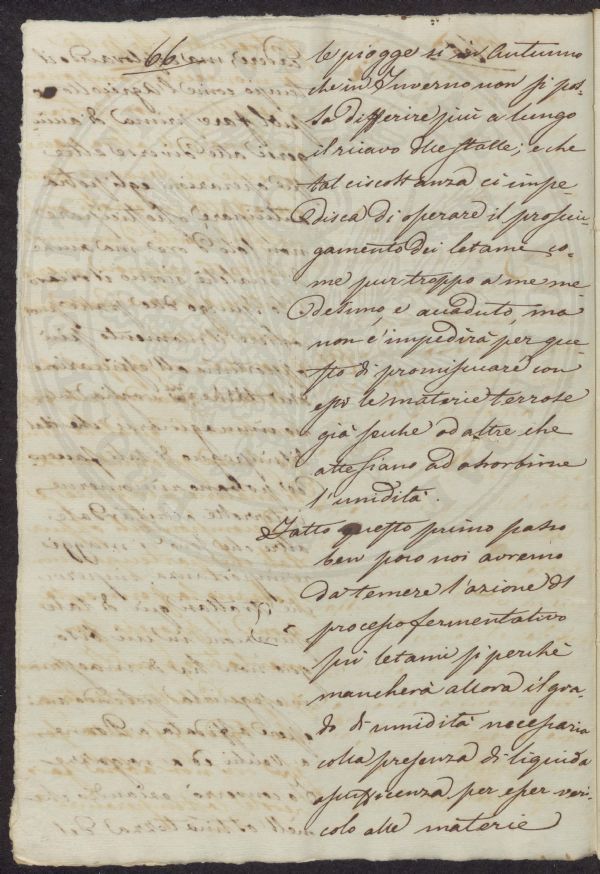 66.
le piogge si in Autunno
che in Inverno non si pos-
sa differire più a lungo
il ricavo dlle stalle; e che
tal circostanza ci impe-
disca di operare il prosciu-
gamento dei letami co-
me pur troppo a me me
desimo, e accaduto, ma
non c'impedirà per que-
sto di promiscuare con
essi le materie terrose
già secche od altre che
atte siano ad assorbirne
l'umidità.
Fatto questo primo passo
ben poco noi avremo
da temere l'azione di
processo fermentativo
più letami si perchè
mancherà allora il gra-
do di umidità necessaria
colla presenza di liquido
a sufficenza per esser vei-
colo alle materie